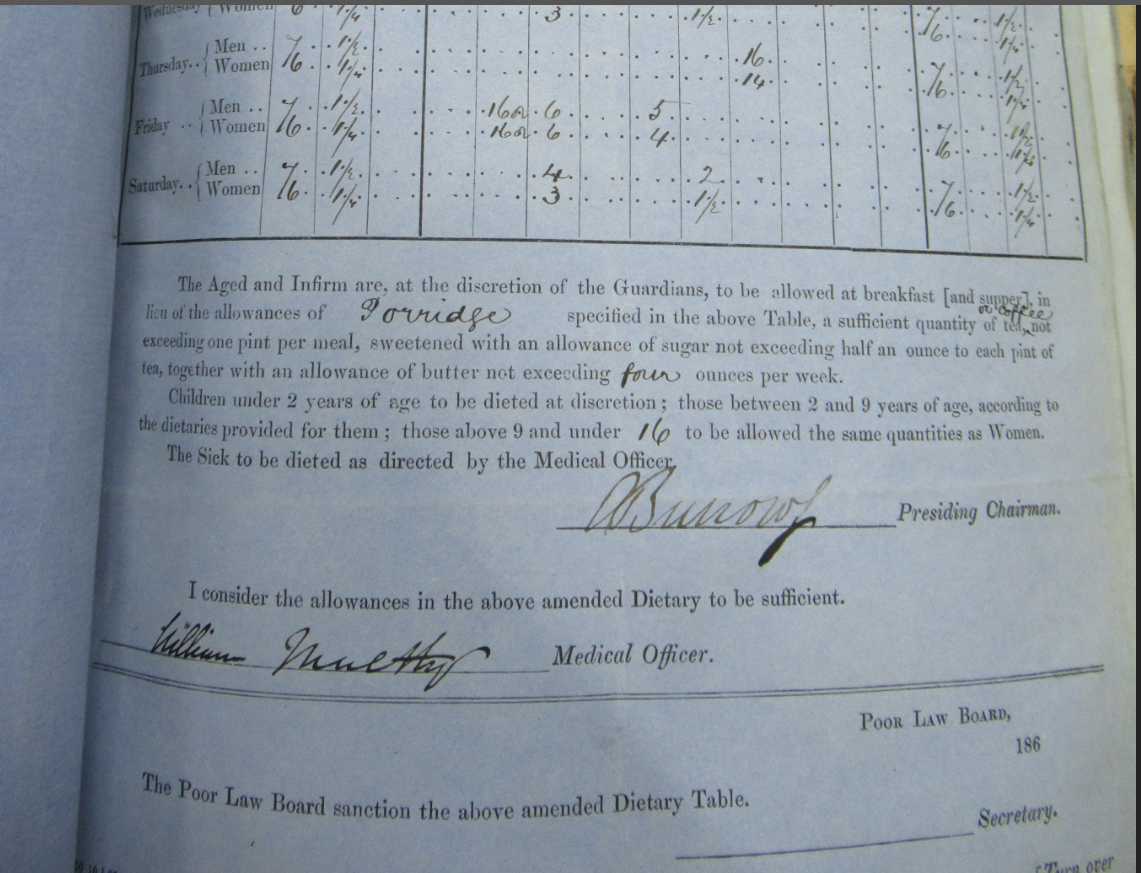 Wednesday { Women 6 1¼ 3 1½ 6 1¼
Thursday.. { Men .. 7 1½ 16 7 1½
Women 6 1¼ 14 6 1¼
Friday .. { Men .. 7 1½ 16oz 6 5 7 1½
Women 6 1¼ 16oz 6 4 6 1¼
Saturday.. { Men .. 7 1½ 4 2 7 1½
Women 6 1¼ 3 1½ 6 1¼
The Aged and Infirm are, at the discretion of the Guardians, to be allowed at breakfast [and supper], in
lieu of the allowances of Porridge specified in the above Table, a sufficient quantity of tea, or coffee not
exceeding one pint per meal, sweetened with an allowance of sugar not exceeding half an ounce to each pint of
tea, together with an allowance of butter not exceeding four ounces per week.
Children under 2 years of age to be dieted at discretion; those between 2 and 9 years of age, according to
the dietaries provided for them; those above 9 and under 16 to be allowed the same quantities as Women.
The Sick to be dieted as directed by the Medical Officer.
Burrows Presiding Chairman.
I consider the allowances in the above amended Dietary to be sufficient.
William Medical Officer.
POOR LAW BOARD,
186
The Poor Law Board sanction the above amended Dietary Table.
Secretary.
[Turn over